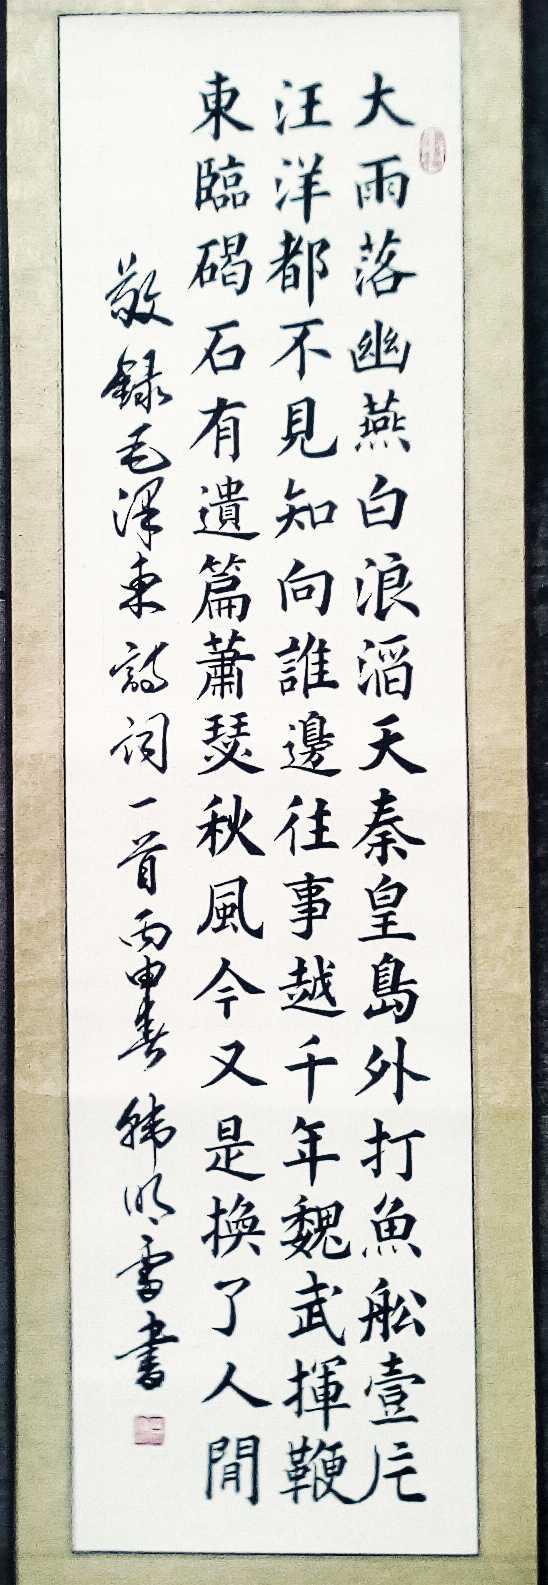 大雨落幽燕白浪滔天秦皇島外打魚船壹片
汪洋都不見知向誰邊往事越千年魏武揮鞭
東臨碣石有遺篇蕭瑟秋風今又是換了人間
敬録毛澤東詩詞一首丙申春韓明雪書